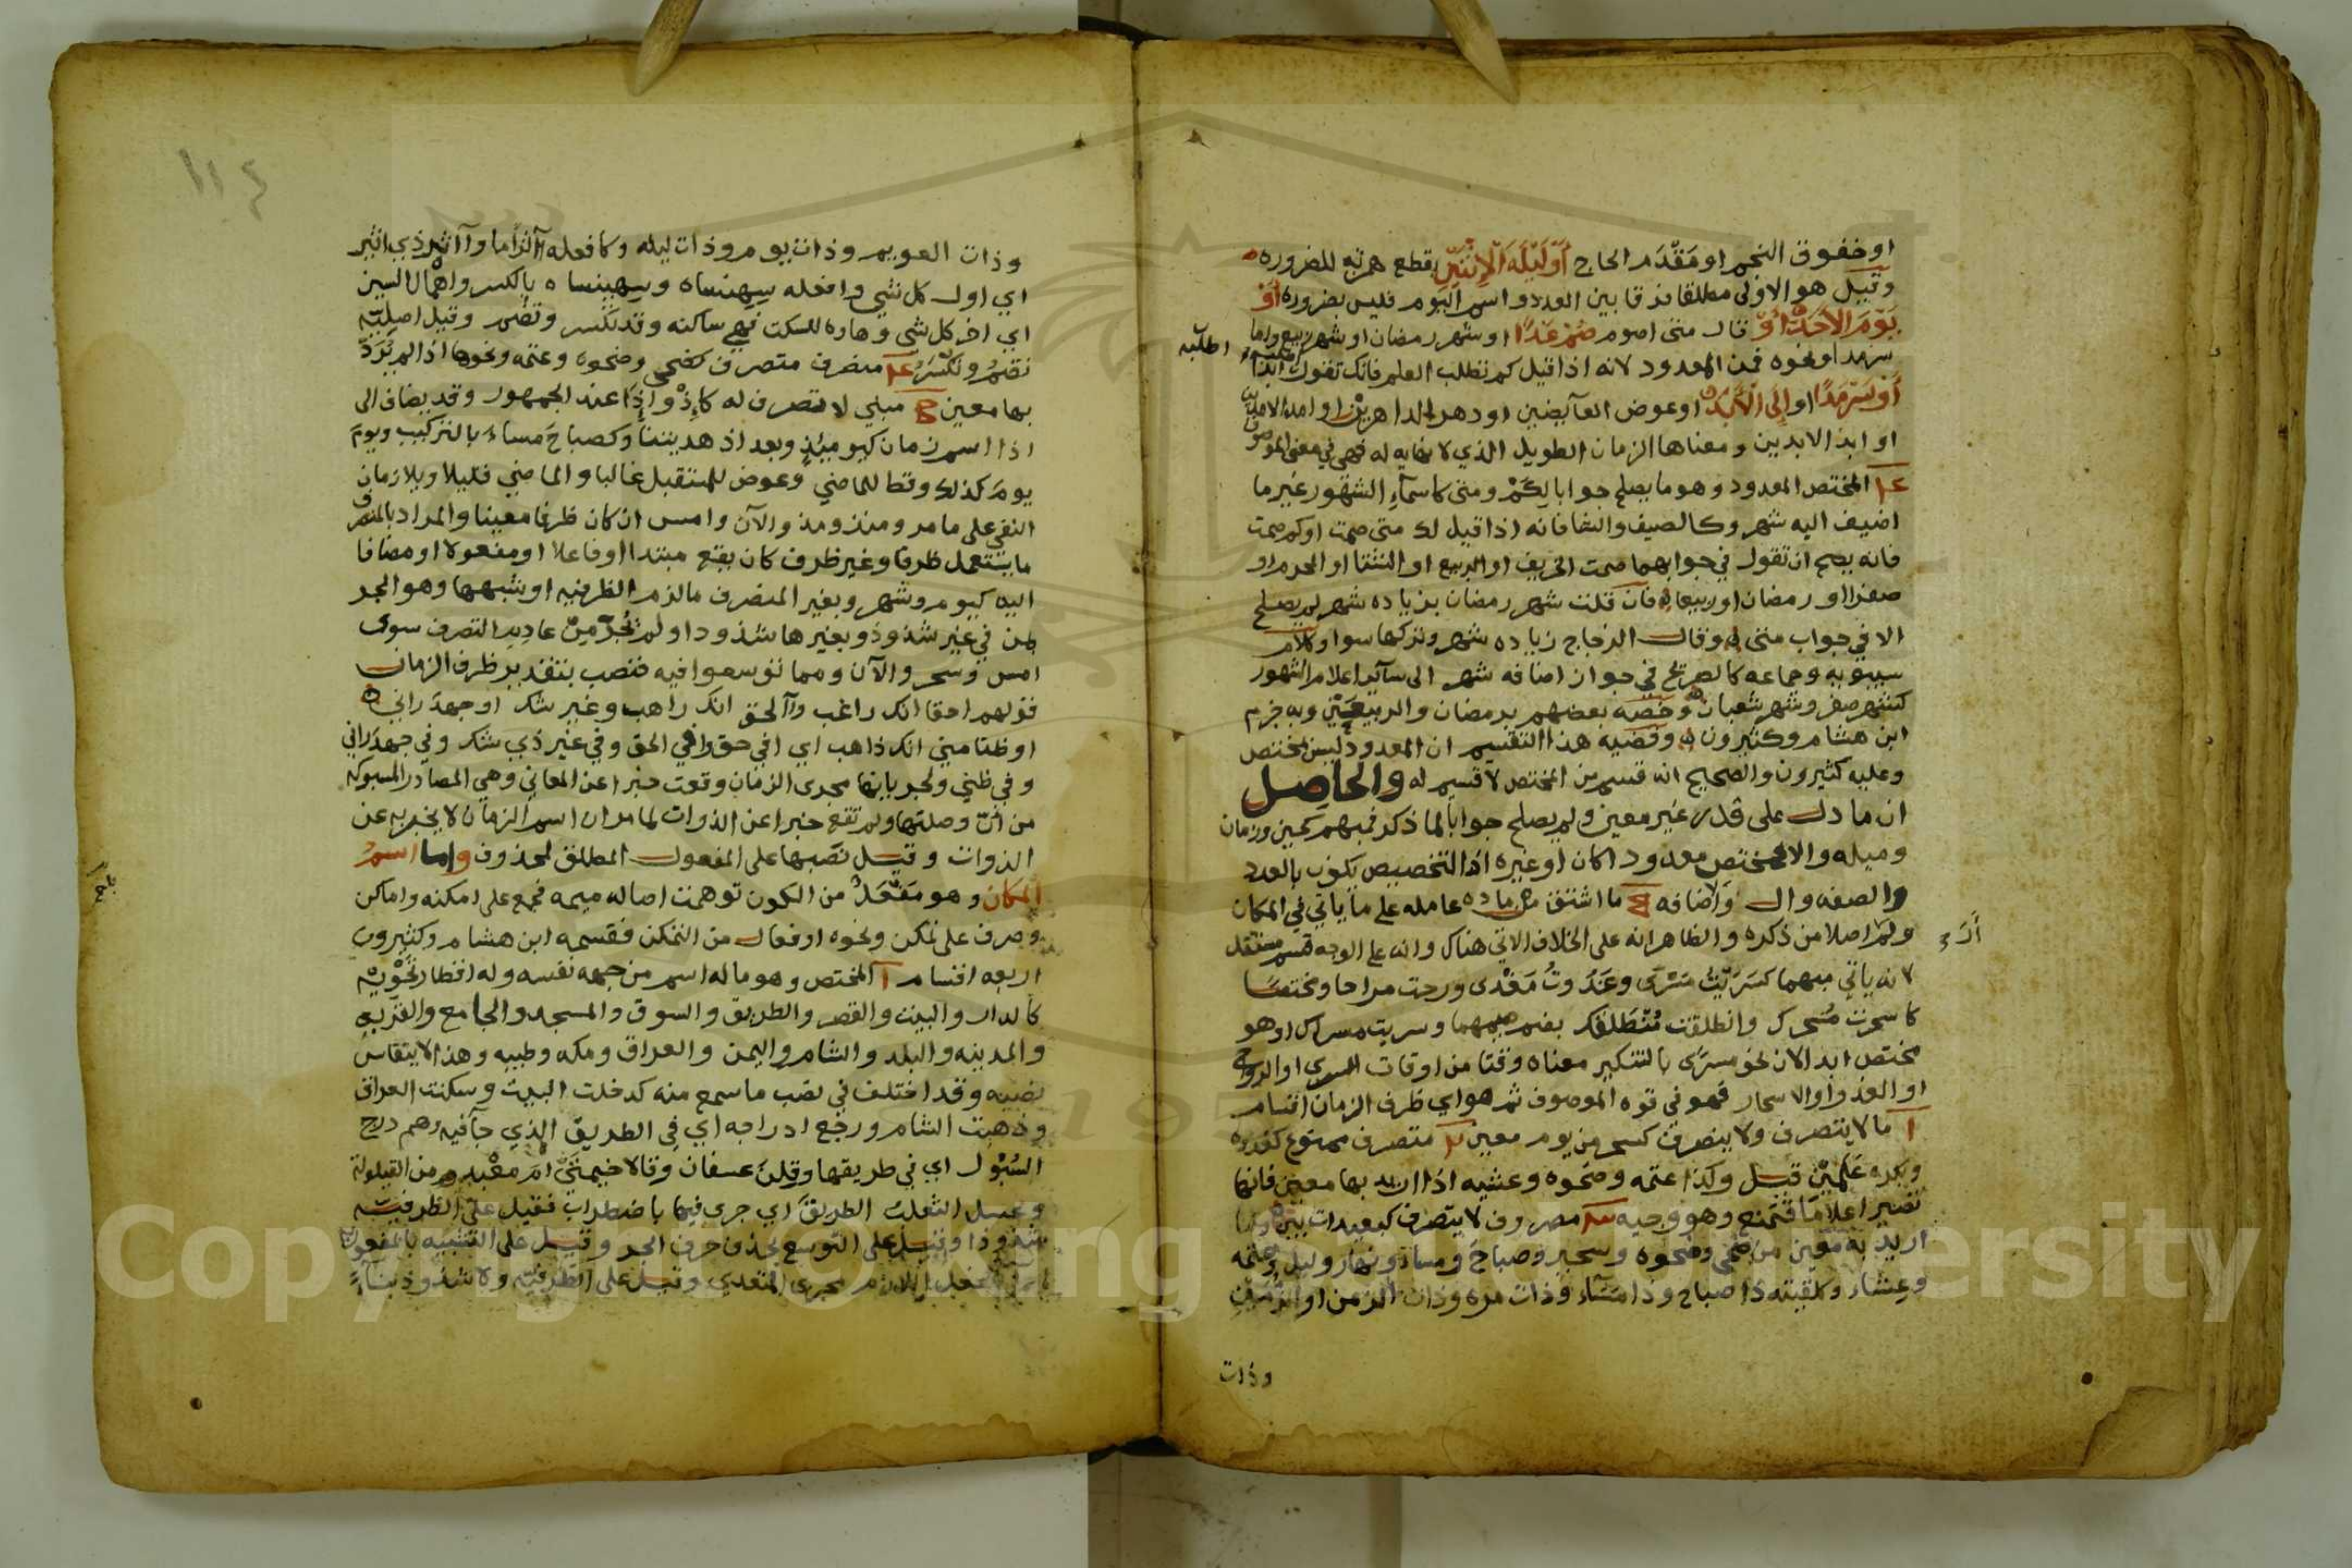 او خفوق النجم او مَقْدَم الحاج أَوْ لَيْلَةَ الْإِثْنَيْنِ بقطع همزته للضروره
وقيل هو الاولى مطلقا فرقا بين العدد واسم اليوم فليس بضروره أَوْ
يَوْمَ الْأَحَدْ أَوْ قال متى اصوم صُمْ غَدًا او شهر رمضان او شهر ربيع واما
سرمدا ونحوه فمن المعدود لانه اذا قيل كم نطلب العلم فانك تقول ابدا
أَوْ سَرْمَدًا او إِلَى الْأَبَدْ او عوض العآيضين او دهر الداهرين او
او ابد الابدين ومعناها الزمان الطويل الذي لا نهايه له فهي في معنى
المختص المعدود وهو ما يصلح جوابا لِكَمْ ومتى كاسمآءِ الشهور غير ما
اضيف اليه شهر وكالصيف والشتا فانه اذا قيل لك متى صمت او كم صمت
فانه يصح ان تقول في جوابهما صمت الخريف او الربيع او الشتا او المحرم او
صفرا او رمضان او ربيعا فان قلت شهر رمضان بزياده شهر لم يصلح
الا في جواب متى وقال الزجاج زياده شهر وتركها سوا وكلام
سيبويه وجماعه كالصريح في جواز اضافه شهر الى سآير اعلام الشهور
كشهر صفر وشهر شعبان وخصه بعضهم برمضان والربيعَيْن وبه جزم
ابن هشام وكثيرون وقضيه هذا التقسيم ان المعدود ليس بمختص
وعليه كثيرون والصحيح انه قسم من المختص لا قسيم له والحاصل
ان ما دل على قدر غير معين ولم يصلح جوابا لما ذكر فمبهم كحين وزمان
وميله والا فمختص معدودا كان او غيره اذ التخصيص يكون بالعدد
والصفه وال والاضافه ما اشتق من ماده عامله على ما ياتي في المكان
ولم اصلا من ذكره والظاهر انه على الخلاف الاتي هناك وانه على الوجه قسم مستقل
لانه ياتي مبهما كسَرَيْتُ مَسْرًى وغَدَوتُ مَغْدى ورحت مراحا ومختصا
كاسحرت مُسْحرك وانطلقت مُنْطَلَقك بضم ميمهما وسريت مسراك اذ هو
مختص ابدا لان نحو مسرى بالتنكير معناه وقتا من اوقات السرى او الرواح
او الغدو او الاسحار فهو في قوه الموصوف ثم هو اي ظرف الزمان اقسام
ما لا يتصرف ولا ينصرف كسحر من يوم معين متصرف ممنوع كغدوه
وبكره عَلَمَيْن قيل وكذا عتمه وضحوه وعشيه اذا اريد بها معين فانها
تصير اعلامًا فتمنع وهو وجيه مصروف لا يتصرف كبعيدات بين وما
اريد به معين من ضحى وضحوه وسحير وصباح ومساء ونهار وليل وعتمه
وعِشاء ولقيته ذا صباح وذا مسَآء وذات مره وذات الزمن او الزُّمَيْن
وذات
اطلبه
وذات العويم وذات يوم وذات ليله وكافعله آثرًا ما وآثر ذي اثير
اي اول كل شي وافعله سِهِنْساه وسِهِينساه بالكسر واهمال السين
اي اخر كل شي وهاوه للسكت فهي ساكنه وقد تكسر وتضم وقيل اصليته
تضَمُّ وتكْسَرُ منصرف متصرف كضحى وضحوه وعتمه ونحوها اذا لم يُرَدْ
بها معين مبني لا تصرف له كاِذْ واِذَا عند الجمهور وقد يضاف الى
اذا اسم زمان كيوميذٍ وبعد اذ هديتنا وكصباحَ مساءَ بالتركيب ويومَ
يومَ كذلك وقط للماضي وعوض للمستقبل غالبا والماضي قليلا ويلازمان
النفي على ما مر ومنذ ومذ والآن وامس ان كان ظرفا معينا والمراد بالمتصرف
ما يستعمل ظرفا وغير ظرف كان يقع مبتدا او فاعلا او مفعولا او مضافا
اليه كيوم وشهر وبغير المتصرف ما لزم الظرفيه او شبهها وهو الجر
بمن في غير شذوذ وبغيرها شذوذا ولم تُجَرّ مِنْ عادِم التصرف سوى
امس وسحر والآن ومما توسعوا فيه فنصب بتقدير ظرف الزمان
قولهم احقا انك راغب وآالحق انك راهب وغير شك او جهدَ رايي
او ظنا مني انك ذاهب اي افي حق وافي الحق وفي غير ذي شك وفي جهد رايي
وفي ظني ولجريانها مجرى الزمان وقعت خبرا عن المعاني وهي المصادر المسبوكه
من أنَّ وصلتها ولم تقع خبرا عن الذوات لما مر ان اسم الزمان لا يخبر به عن
الذوات وقيل نصبها على المفعول المطلق لمحذوف واما اسم
المكان وهو مَفْعَلٌ من الكون توهمت اصاله ميمه فجمع على امكنه واماكن
وصرف على تمكن ونحوه او فعال من التمكن فقسمه ابن هشام وكثيرون
اربعه اقسام المختص وهو ما له اسم من جهه نفسه وله اقطار تَحْوِيه
كالدار والبيت والقصر والطريق والسوق والمسجد والجامع والقريه
والمدينه والبلد والشام واليمن والعراق ومكه وطيبه وهذا لا ينقاس
نصبه وقد اختلف في نصب ما سمع منه كدخلت البيت وسكنت العراق
وذهبت الشام ورجع ادراجه اي في الطريق الذي جآ فيه وهم درج
السُّيُول اي في طريقها وقِلْنَ عسفان وقالا خيمتَيْ امّ معْبد من القيلوله
وعسل الثعلب الطريقَ اي جرى فيها باضطراب فقيل على الظرفيه
شذوذا وقيل على التوسع بحذف حرف الجر وقيل على التشبيه بالمفعول
مجرى المتعدي وقيل على الظرفيه ولا شذوذ
١١٤